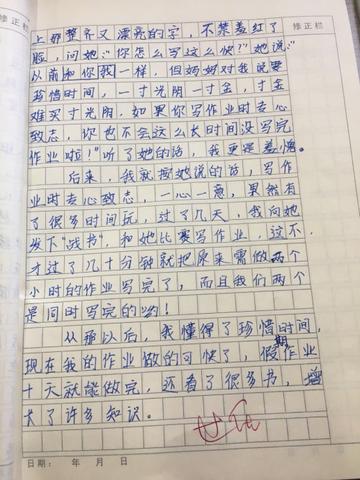 修正栏
修正栏
上那整齐又漂亮的字，不禁羞红了
脸，问她："你怎么写这么快？"她说："
从前和你我一样，但妈妈对我说要
珍惜时间，一寸光阴一寸金，寸金
难买寸光阴，如果你写作业时专心
致志，你也不会这么长时间没写完
作业啦！"听了她的话，我更是羞愧。
后来，我就按她说的话，写作
业时专心致志，一心一意，果然有
了很多时间玩，过了几天，我向她
发下"战书"，和她比赛写作业，这不，
才过了几十分钟就把原来需做两个
小时的作业写完了，而且我们两个
是同时写完的哟！
从那以后，我懂得了珍惜时间，
现在我的作业做的可快了，假期作业
十天就能做完，还看了很多书，增
长了许多知识。
日期： 年 月 日